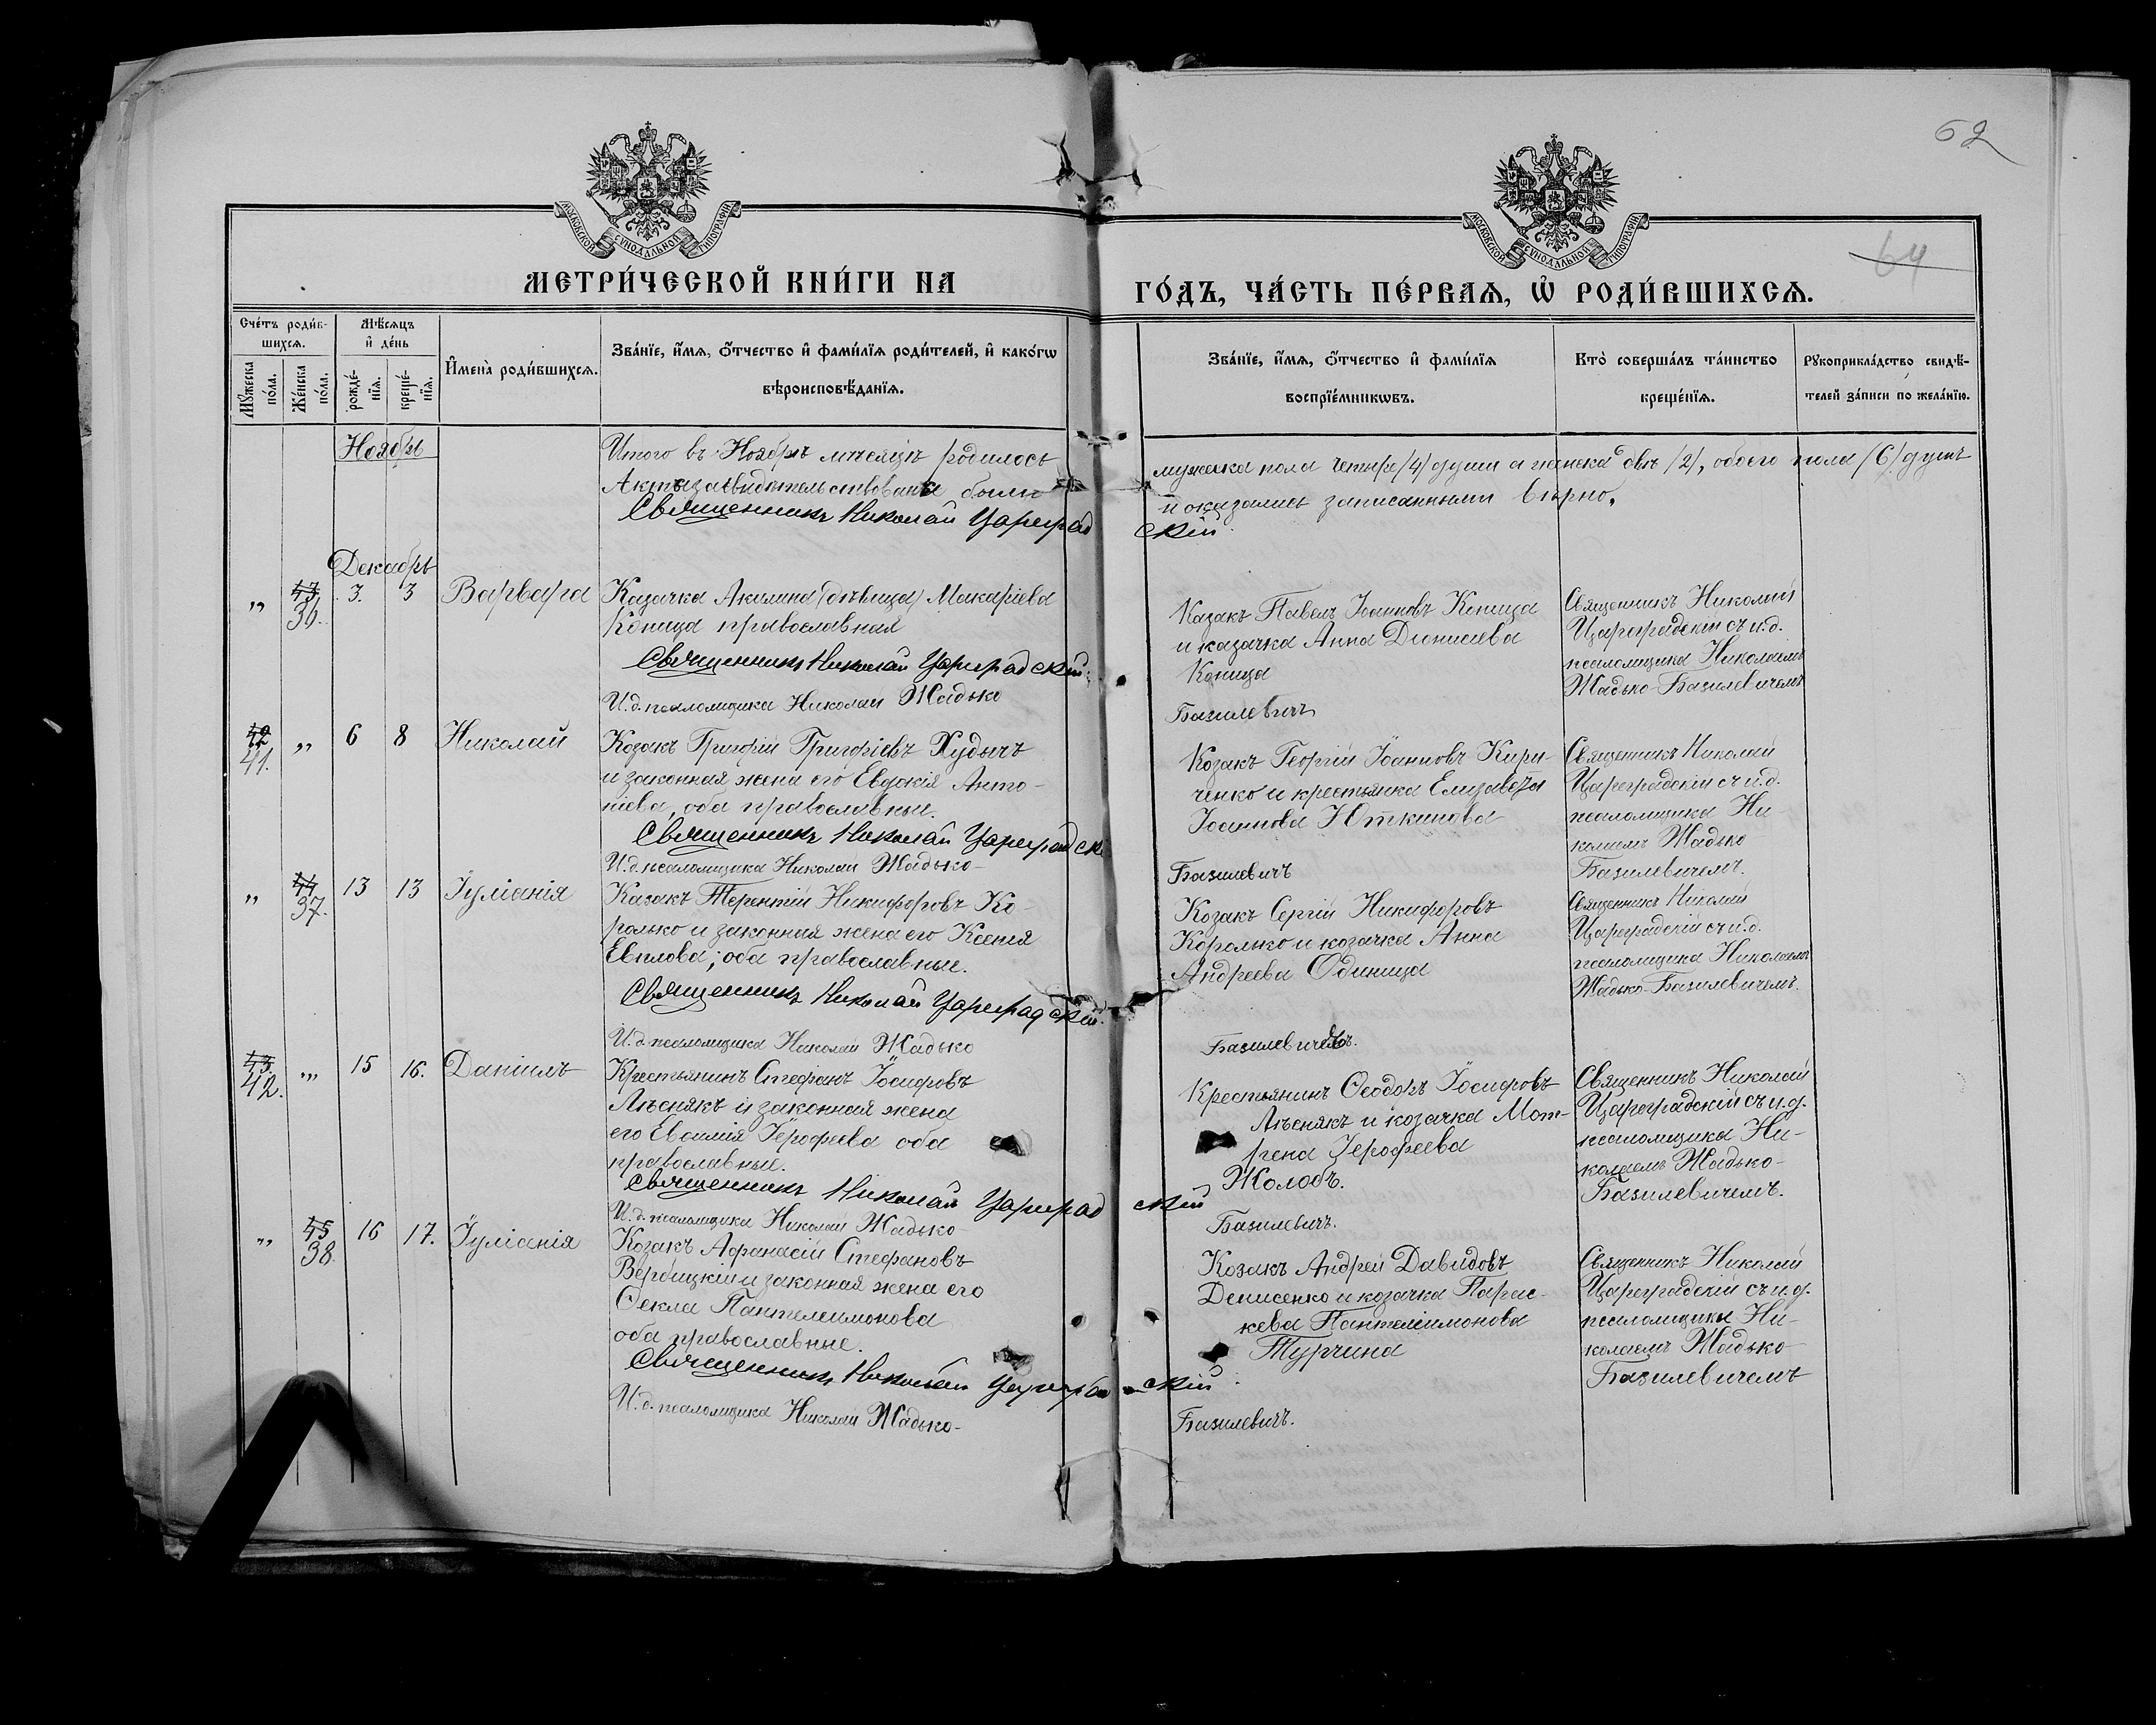 62
64
МОСКОВСКОЙ СѴНОДАЛЬНОЙ ТИПОГРАФІИ
МОСКОВСКОЙ СѴНОДАЛЬНОЙ ТИПОГРАФІИ
МЕТРИ́ЧЕСКОЙ КНИ́ГИ НА
ГО́ДЪ, ЧА́СТЬ ПЕ́РВАѦ, Ѡ РОДИ́ВШИХСѦ.
Сче́тъ роди́в-
шихсѧ.
Мѣ́сѧцъ
и҆ де́нь
Мꙋ́жеска
по́ла.
Же́нска
по́ла.
рожде́-
нїѧ.
креще́-
нїѧ.
И҆мена̀ роди́вшихсѧ.
Зва́нїе, и҆́мѧ, ѻ҆́тчество и҆ фами́лїѧ роди́телей, и҆ како́гѡ
вѣроисповѣ́данїѧ.
Зва́нїе, и҆́мѧ, ѻ҆́тчество и҆ фами́лїѧ
воспрїе́мникѡвъ.
Кто̀ соверша́лъ та́инство
креще́нїѧ.
Рꙋкоприкла́дство свидѣ́-
телей за́писи по жела́нїю.
Ноябрь
Итого въ Ноябрѣ мѣсяцѣ родилось
мужска пола четыре /4/ души а женска двѣ /2/, обоего пола /6/ душъ
Акты засвидѣтельствованы были
и оказались записанными вѣрно.
Священникъ Николай Цареградскій
Декабрь
„ 43 36. 3. 3 Варвара
Казачка Акилина (дѣвица) Макаріева
Коница православная
Священникъ Николай Цареградскій
И.д. псаломщика Николай Жадько
Базилевичъ
Казакъ Павелъ Іоанновъ Коница
и казачка Анна Діонисіева
Коница
Священникъ Николай
Цареградскій съ и.д.
псаломщика Николаемъ
Жадько-Базилевичемъ
42 41. „ 6 8 Николай
Козакъ Григорій Григоріевъ Худычъ
и законная жена его Евдокія Анто-
ніева, оба православные.
Священникъ Николай Цареградск
И.д. псаломщика Николай Жадько-
Базилевичъ
Козакъ Георгій Іоанновъ Кири-
ченко и крестьянка Елизавета
Іоаннова Юткинова
Священникъ Николай
Цареградскій съ и.д.
псаломщика Ни-
колаемъ Жадько
Базилевичемъ.
„ 44 37. 13 13 Іуліанія
Казакъ Терентій Никифоровъ Ко-
ролько и законная жена его Ксенія
Евилова; оба православные.
Священникъ Николай Цареградскій.
И.д. псаломщика Николай Жадько
Базилевичъ.
Козакъ Сергій Никифоровъ
Королько и козачка Анна
Андреева Одиница
Священникъ Николай
Цареградскій съ и.д.
псаломщика Николаемъ
Жадько-Базилевичемъ.
43. 42. „ 15 16. Даніилъ
Крестьянинъ Стефанъ Іосифовъ
Лѣснякъ и законная жена
его Евѳимія Іерофеева оба
православные.
Священникъ Николай Цареградскій
И.д. псаломщика Николай Жадько
Базилевичъ.
Крестьянинъ Ѳеодоръ Іосифовъ
Лѣснякъ и козачка Мот-
рена Іерофеева
Жолобъ.
Священникъ Николай
Цареградскій съ и.д.
псаломщика Ни-
колаемъ Жадько-
Базилевичемъ.
„ 45 38. 16 17. Іуліанія
Козакъ Афанасій Стефановъ
Вербицкій и законная жена его
Ѳекла Пантелеимонова
оба православные.
Священникъ Николай Цареградскій
И.д. псаломщика Николай Жадько-
Базилевичъ.
Козакъ Андрей Давидовъ
Денисенко и козачка Парас-
кева Пантелеимонова
Турчина
Священникъ Николай
Цареградскій съ и.д.
псаломщика Ни-
колаемъ Жадько
Базилевичемъ